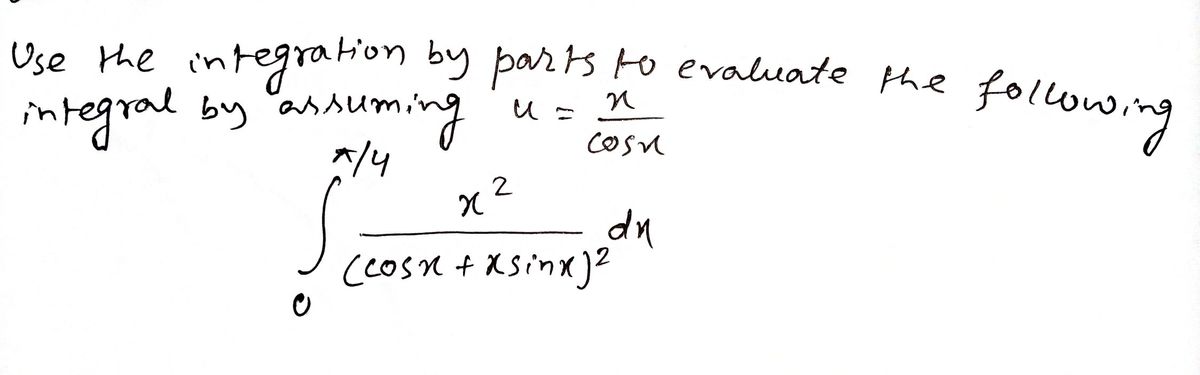 Use the integration by parts to evaluate the following
integral by assuming u = x/cosx
∫₀^π/4 x²/(cosx + xsinx)² dx